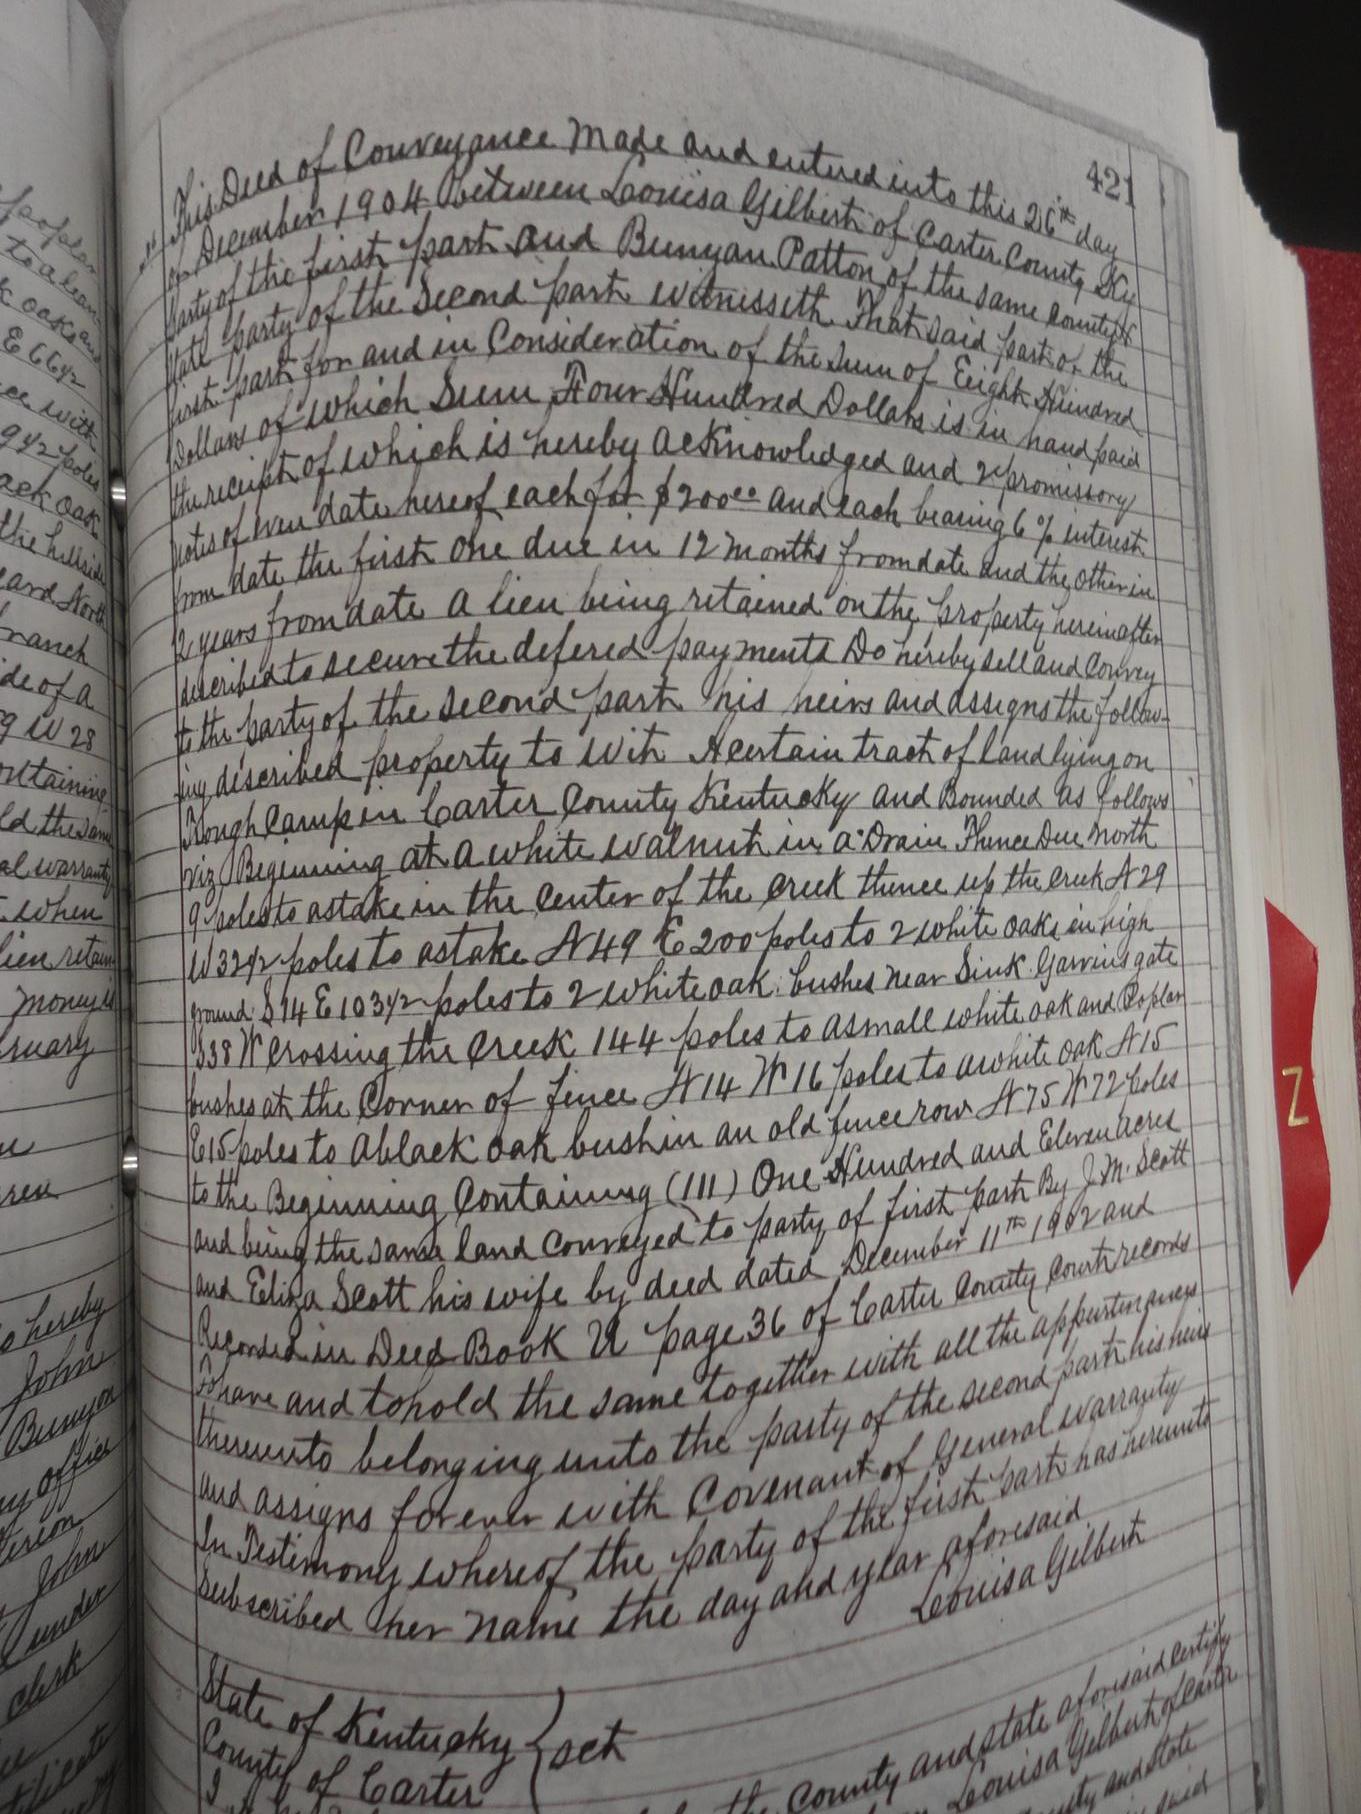 421
This Deed of Conveyance Made and entered into this 26th day
of December 1904 between Louisa Gilbert of Carter County Ky
party of the first part and Bunyan Patton of the same County &
state party of the Second part witnesseth That said part of the
first part for and in Consideration of the Sum of Eeight Hundred
Dollars of which Sum Four Hundred Dollars is in hand paid
the receipt of which is hereby acknowledged and 2 promissory
notes of even date hereof each for $200.00 and each bearing 6% interest
from date the first one due in 12 months from date and the other in
2 years from date A lien being retained on the property hereinafter
described to secure the defered payments Do hereby sell and Convey
to the party of the second part his heirs and assigns the follow-
ing described property to wit A certain tract of land lying on
Rough Camp in Carter County Kentucky and Bounded as follows
viz Beginning at a white walnut in a Drain Thence Due North
9 poles to a stake in the center of the creek thence up the creek N 29
W 32 1/2 poles to a stake N 49 E 200 poles to 2 white oaks in high
ground S 14 E 103 1/2 poles to 2 white oak bushes near Sink Garvins gate
S 38 W crossing the creek 144 poles to a small white oak and Poplar
bushes at the Corner of fence N 14 W 16 poles to a white oak N 15
E 15 poles to a black oak bush in an old fence row N 75 W 72 poles
to the Beginning Containing (111) One Hundred and Eleven acres
and being the same land conveyed to party of first part By J. M. Scott
and Eliza Scott his wife by deed dated December 11th 1902 and
Recorded in Deed Book U page 36 of Carter County Court records
To have and to hold the same together with all the appurtenances
thereunto belonging unto the party of the second part his heirs
and assigns forever with Covenant of General Warranty
In Testimony whereof the party of the first part has hereunto
Subscribed her name the day and year aforesaid
Louisa Gilbert
State of Kentucky } sct
County of Carter
I County and State aforesaid certify
Louisa Gilbert of Carter
County and State
said
poplar
oaks and
E 66 1/2
with
9 1/2 poles
oak
the hillside
North
branch
side of a
W 28
containing
the same
warranty
when
lien retain
money is
hereby
John
Bunyan
office
John
under
clerk
Z